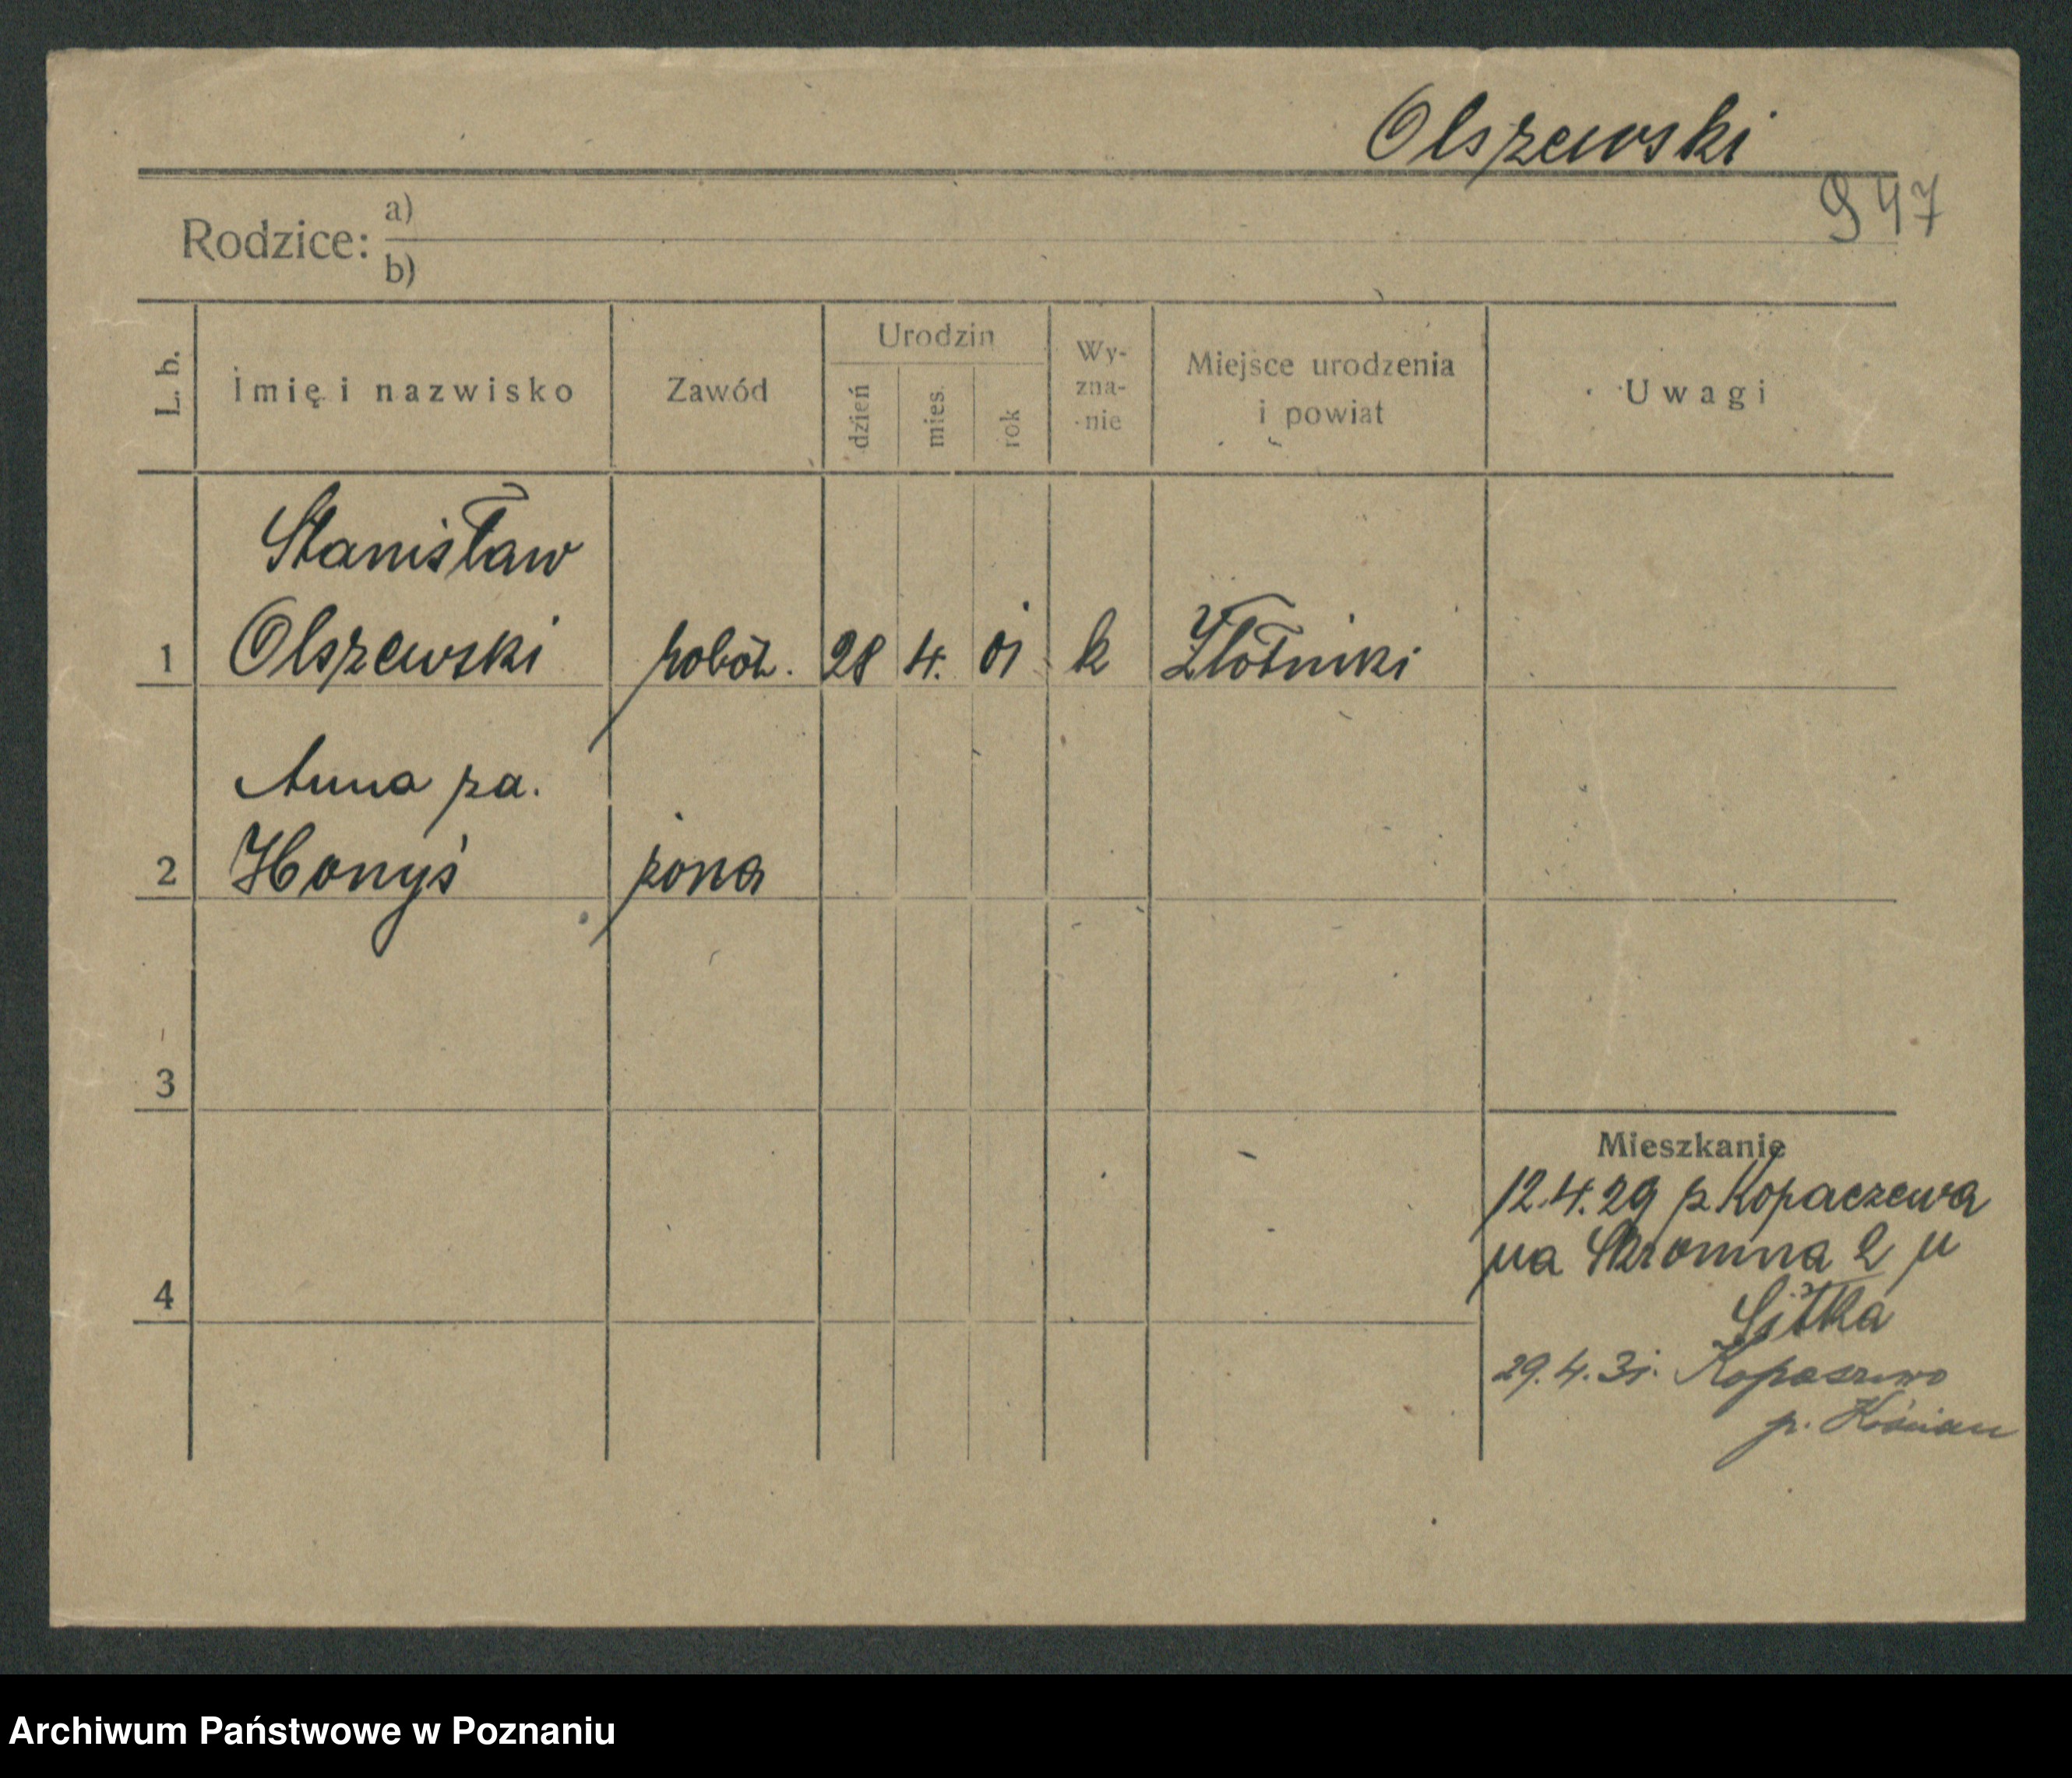 Olszewski
947
Rodzice: a)
b)
L. b.
Imię i nazwisko
Zawód
Urodzin
dzień
mies.
rok
Wy-
zna-
nie
Miejsce urodzenia
i powiat
Uwagi
Stanisław
1 Olszewski robotn. 28 4. 01 k Złotniki
Anna za.
2 Honyś żona
3
4
Mieszkanie
12.4.29 z Kopaczewa
na Skromna 2 u
Sitka
29.4.31. Kopaszewo
p. Kościan
Archiwum Państwowe w Poznaniu